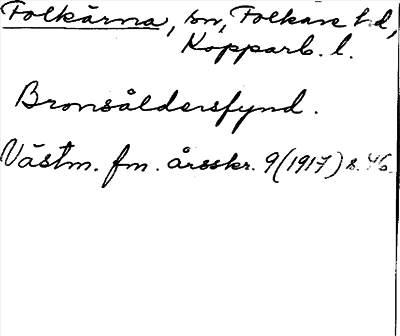 Folkärna, sn, Folkare hd,
Kopparb. l.
Bronsåldersfynd.
Västm. fm. årsskr. 9(1917) s. 46.